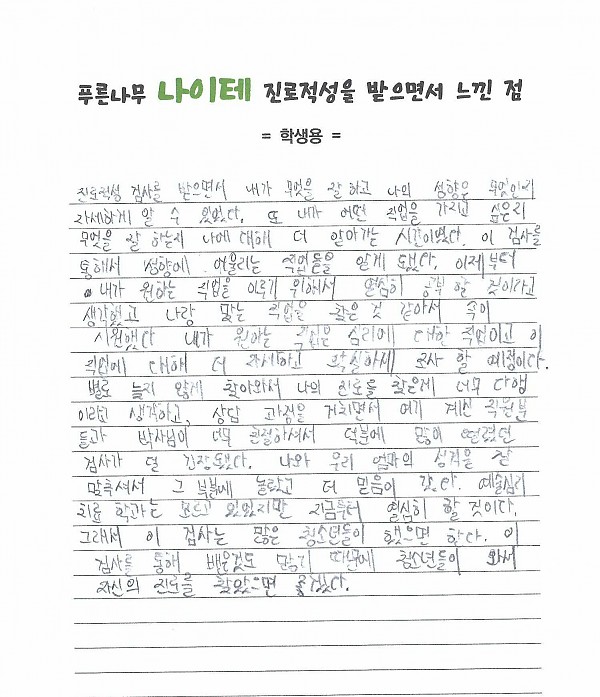 푸른나무 나이테 진로적성을 받으면서 느낀 점
= 학생용 =
진로적성 검사를 받으면서 내가 무엇을 잘 하고 나의 성향은 무엇인지
자세하게 알 수 있었다. 또 내가 어떤 직업을 가지고 싶은지
무엇을 잘 하는지 나에 대해 더 알아가는 시간이였다. 이 검사를
통해서 성향에 어울리는 직업들을 알게 됐다. 이제부터
내가 원하는 직업을 이루기 위해서 열심히 공부 할 것이라고
생각했고 나랑 맞는 직업을 찾은 것 같아서 속이
시원했다 내가 원하는 직업은 심리에 대한 직업이고 이
직업에 대해 더 자세하고 확실하게 조사 할 예정이다.
별로 늦지 않게 찾아와서 나의 진로를 찾은게 너무 다행
이라고 생각하고, 상담 과정을 거치면서 여기 계신 직원분
들과 박사님이 너무 친절하셔서 덕분에 많이 떨렸던
검사가 덜 긴장됐다. 나와 우리 엄마의 성격을 잘
맞추셔서 그 부분에 놀랐고 더 믿음이 갔다. 예술심리
치료 학과는 모르고 있었지만 지금부터 열심히 할 것이다.
그래서 이 검사는 많은 청소년들이 했으면 한다. 이
검사를 통해 배운것도 많기 때문에 청소년들이 와서
자신의 진로를 찾았으면 좋겠다.